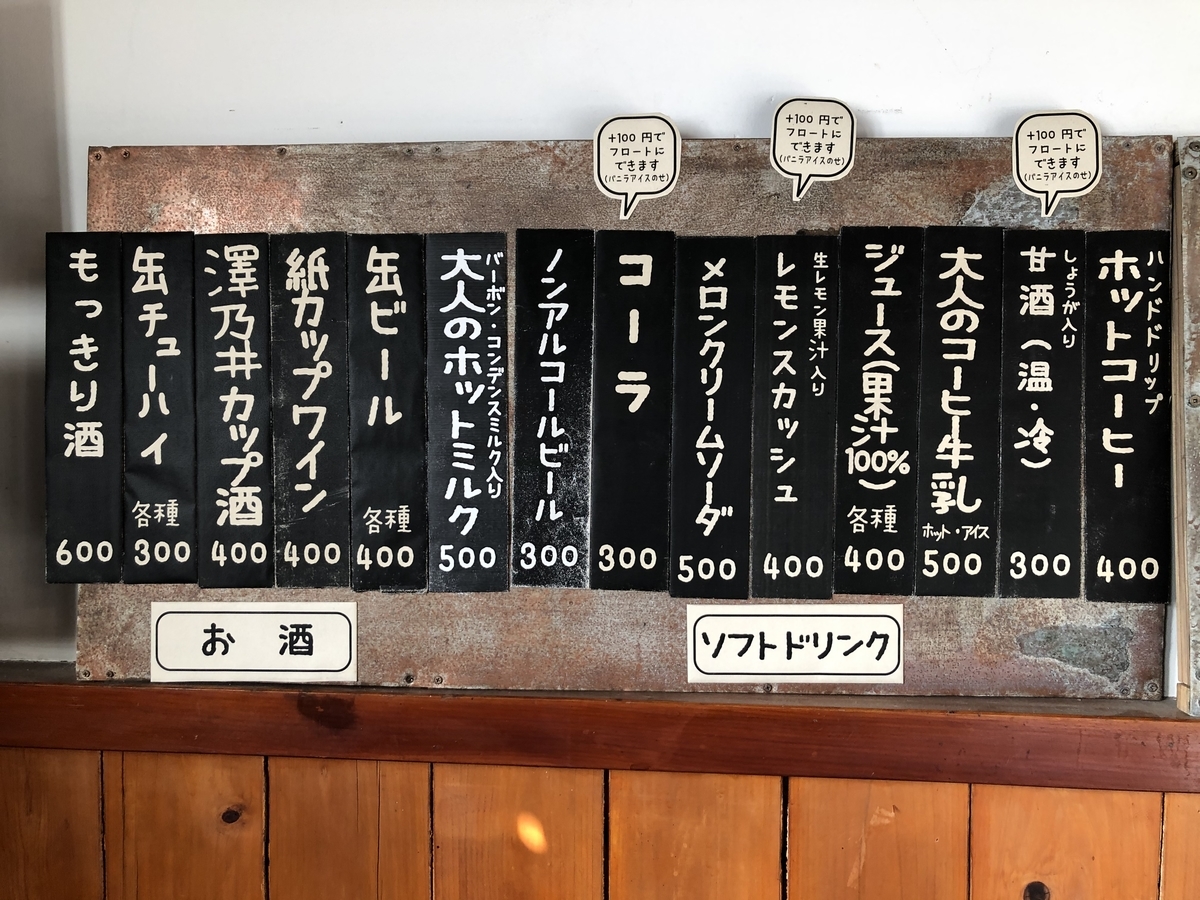 +100 円で
フロートに
できます
(バニラアイスのせ)
+100 円で
フロートに
できます
(バニラアイスのせ)
+100 円で
フロートに
できます
(バニラアイスのせ)
ハンドドリップ
ホットコーヒー
400
しょうが入り
甘酒(温・冷)
300
大人のコーヒー牛乳
ホット・アイス
500
ジュース(果汁100%)
各種
400
生レモン果汁入り
レモンスカッシュ
400
メロンクリームソーダ
500
コーラ
300
ノンアルコールビール
300
バーボン・コンデンスミルク入り
大人のホットミルク
500
缶ビール
各種
400
紙カップワイン
400
澤乃井カップ酒
400
缶チューハイ
各種
300
もっきり酒
600
ソフトドリンク
お 酒